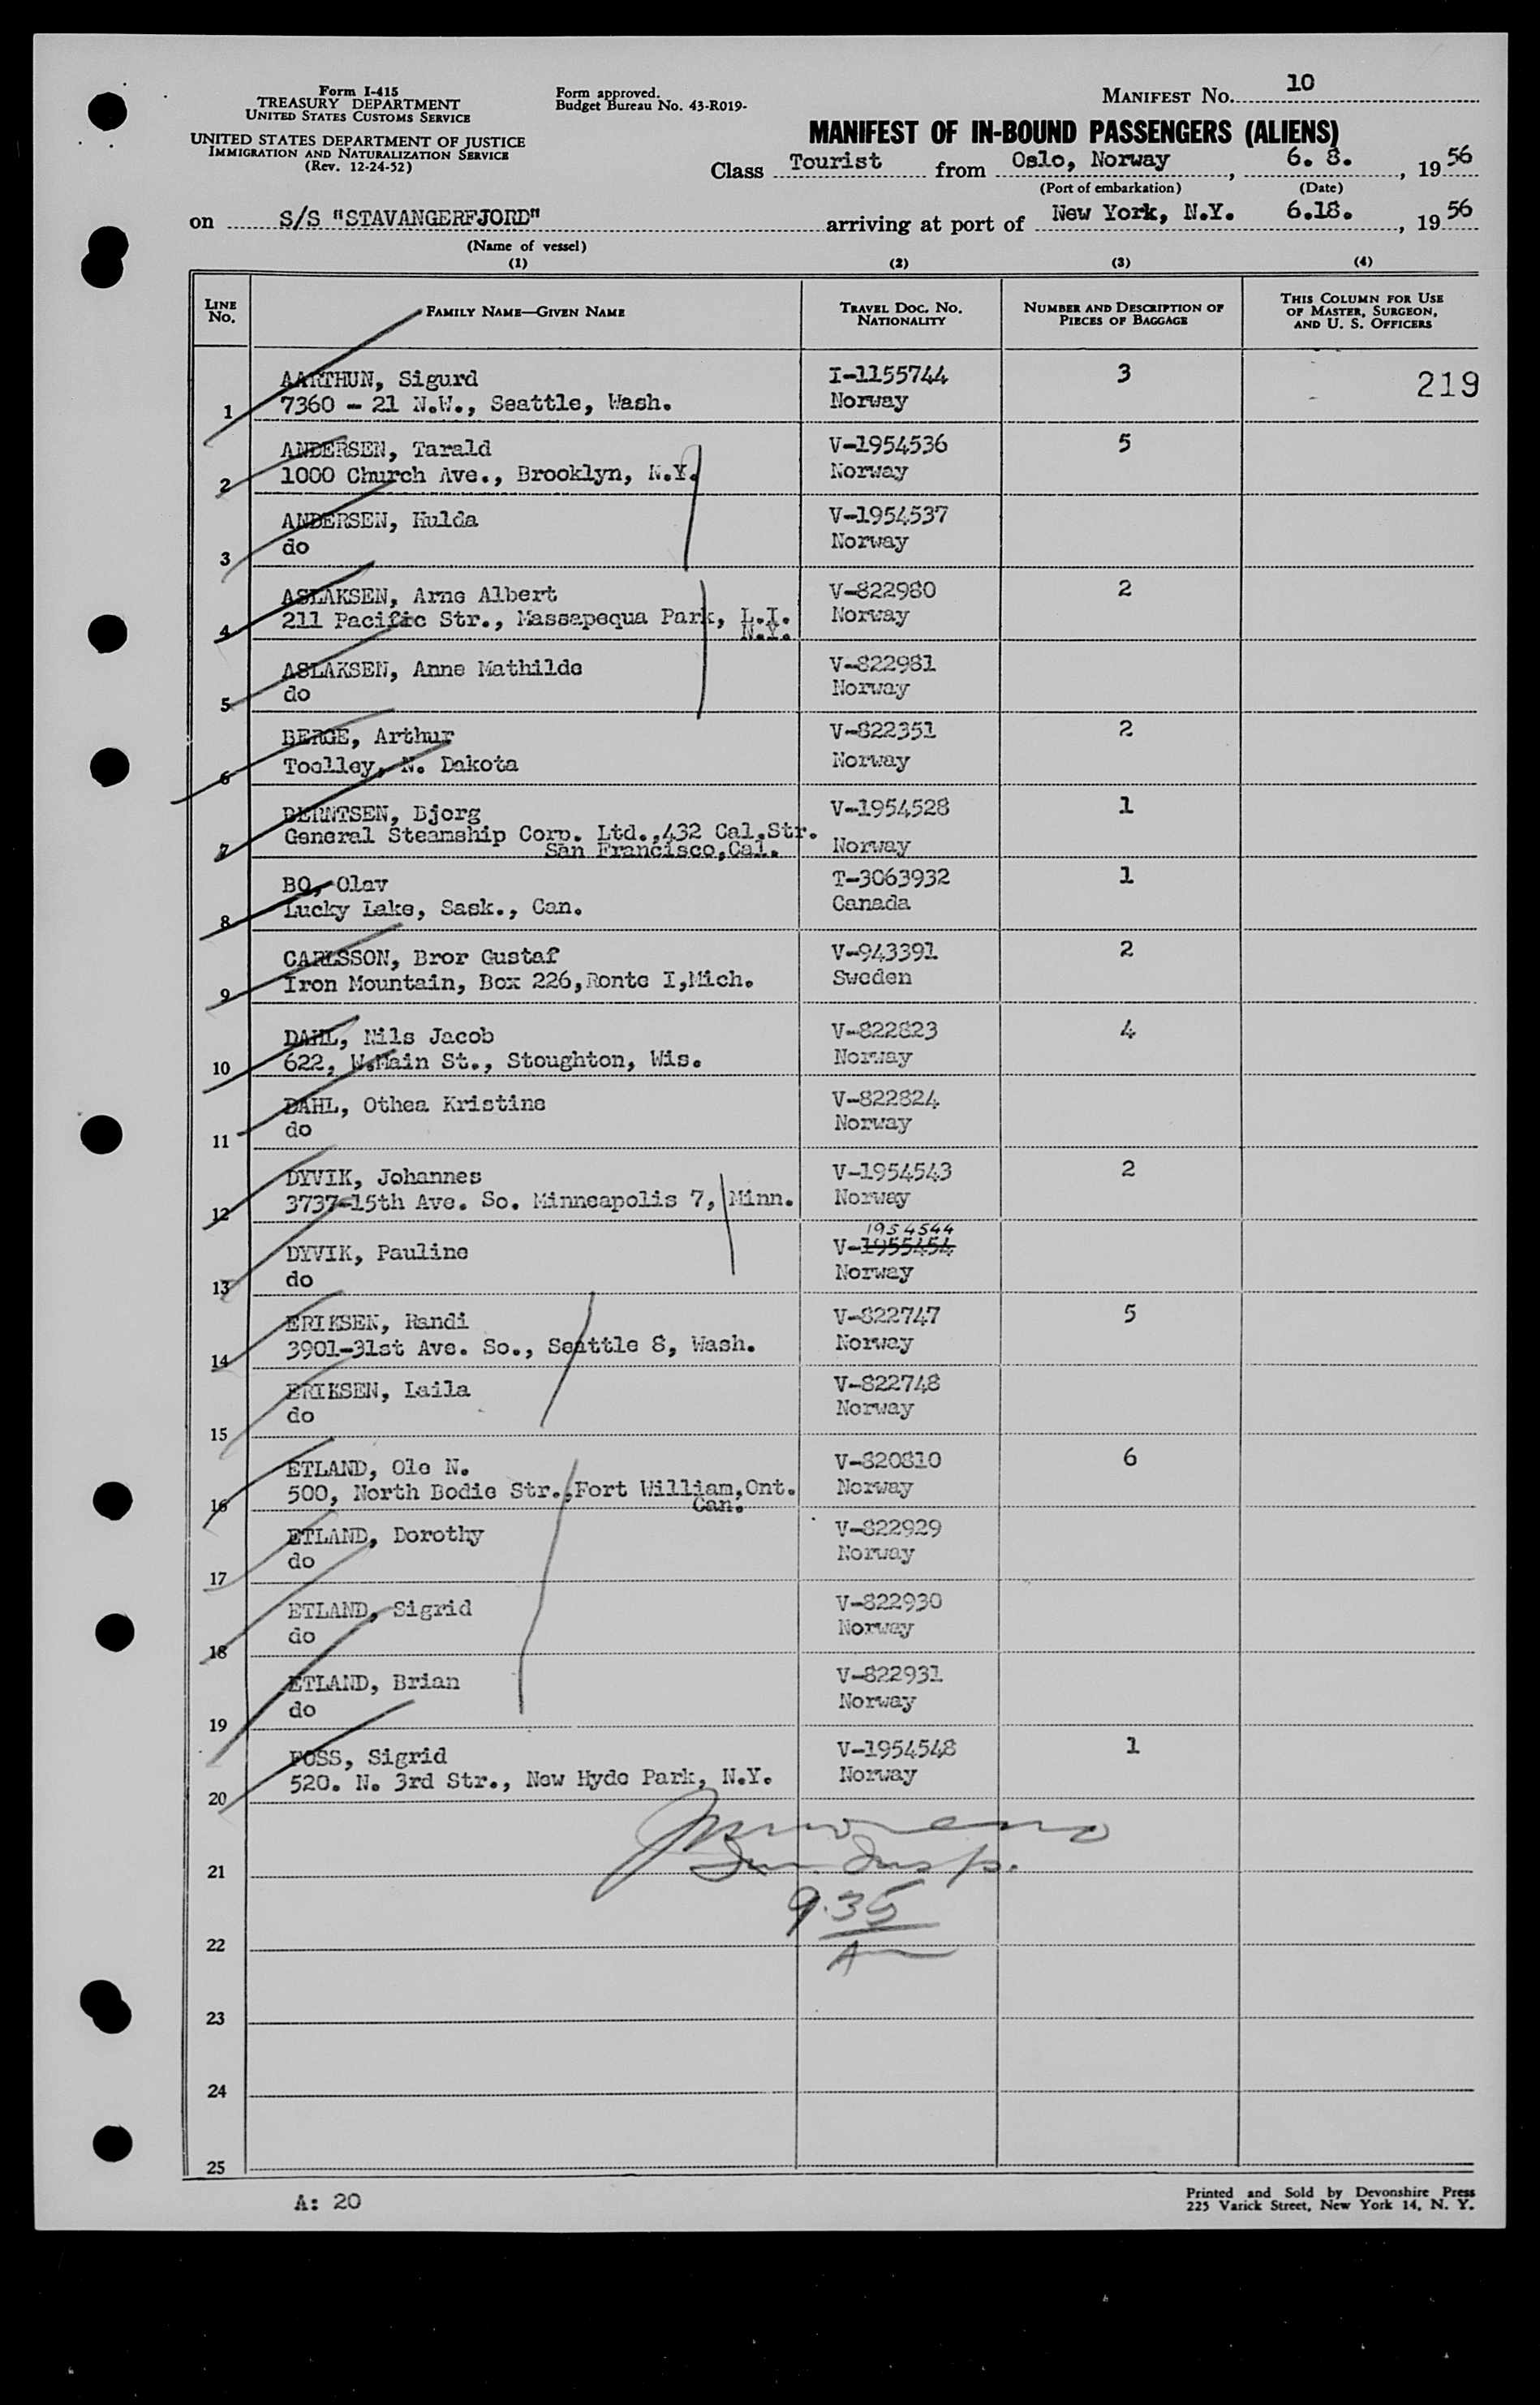 Form I-415
TREASURY DEPARTMENT
UNITED STATES CUSTOMS SERVICE
UNITED STATES DEPARTMENT OF JUSTICE
IMMIGRATION AND NATURALIZATION SERVICE
(Rev. 12-24-52)
Form approved.
Budget Bureau No. 43-R019-
MANIFEST No. 10
MANIFEST OF IN-BOUND PASSENGERS (ALIENS)
Class Tourist from Oslo, Norway, 6. 8., 1956
(Port of embarkation) (Date)
on S/S "STAVANGERFJORD" arriving at port of New York, N.Y. 6.18., 1956
(Name of vessel)
(1) (2) (3) (4)
LINE No. FAMILY NAME—GIVEN NAME TRAVEL DOC. No. NATIONALITY NUMBER AND DESCRIPTION OF PIECES OF BAGGAGE THIS COLUMN FOR USE OF MASTER, SURGEON, AND U. S. OFFICERS
AARTHUN, Sigurd I-1155744 3 219
1 7360 - 21 N.W., Seattle, Wash. Norway
ANDERSEN, Tarald V-1954536 5
2 1000 Church Ave., Brooklyn, N.Y. Norway
ANDERSEN, Hulda V-1954537
3 do Norway
ASLAKSEN, Arne Albert V-822980 2
4 211 Pacific Str., Massapequa Park, L.I. N.Y. Norway
ASLAKSEN, Anne Mathilde V-822981
5 do Norway
BERGE, Arthur V-822351 2
6 Toolley, N. Dakota Norway
BERNTSEN, Bjorg V-1954528 1
7 General Steamship Corp. Ltd.,432 Cal.Str.
San Francisco,Cal. Norway
BO, Olav T-3063932 1
8 Lucky Lake, Sask., Can. Canada
CARLSSON, Bror Gustaf V-943391 2
9 Iron Mountain, Box 226,Ronte I,Mich. Sweden
DAHL, Nils Jacob V-822823 4
10 622, W.Main St., Stoughton, Wis. Norway
DAHL, Othea Kristine V-822824
11 do Norway
DYVIK, Johannes V-1954543 2
12 3737-15th Ave. So. Minneapolis 7, Minn. Norway
1954544
DYVIK, Pauline V-1955454
13 do Norway
ERIKSEN, Randi V-822747 5
14 3901-31st Ave. So., Seattle 8, Wash. Norway
ERIKSEN, Laila V-822748
15 do Norway
ETLAND, Ole N. V-820810 6
16 500, North Bodie Str.,Fort William,Ont. Norway
Can.
ETLAND, Dorothy V-822929
17 do Norway
ETLAND, Sigrid V-822930
18 do Norway
ETLAND, Brian V-822931
19 do Norway
FOSS, Sigrid V-1954548 1
20 520. N. 3rd Str., New Hyde Park, N.Y. Norway
21
9.35
22
23
24
25
A: 20
Printed and Sold by Devonshire Press
225 Varick Street, New York 14, N. Y.